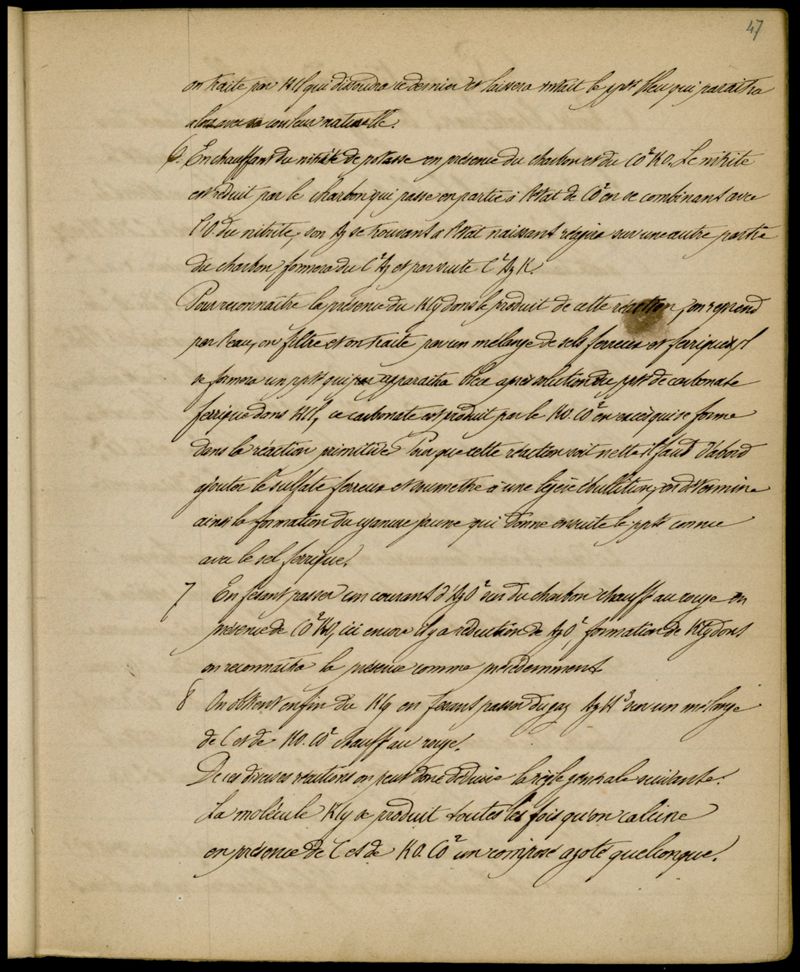 47
on traite par HCl qui dissoudra ce dernier et laissera intact le ppté bleu qui paraitra
alors avec sa couleur naturelle.
6. En chauffant du nitrite de potasse en présence du charbon et du CO²KO. Le nitrite
est réduit par le charbon qui passe en partie à l'état de CO² en se combinant avec
l'O du nitrite, son Az se trouvant à l'état naissant réagira sur une autre partie
du charbon, formera du C²Az et par suite C²AzK.
Pour reconnaître la présence du KCy dans le produit de cette réaction, on reprend
par l'eau, on filtre et on traite par un mélange de sels ferreux et ferriques, il
se formera un ppté qui apparaitra bleu après solution du ppté de carbonate
ferrique dans HCl, ce carbonate est produit par le KO.CO² en excès qui se forme
dans la réaction primitive. Pour que cette réaction soit nette il faut d'abord
ajouter le sulfate ferreux et soumettre à une légère ébullition, on détermine
ainsi la formation du cyanure jaune qui donne ensuite le ppté connu
avec le sel ferrique.
7 En fesant passer un courant d'AzO² sur du charbon chauffé au rouge en
présence de CO²KO, ici encore il y a réduction de AzO², formation de KCy dont
on reconnaitra la présence comme précédemment
8 On obtient enfin du KCy en fesant passer du gaz AzH³ sur un mélange
de C et de KO.CO² chauffé au rouge.
De ces diverses réactions on peut donc déduire la règle générale suivante.
La molécule KCy se produit toutes les fois qu'on calcine
en présence de C et de KO.CO² un composé azoté quelconque.